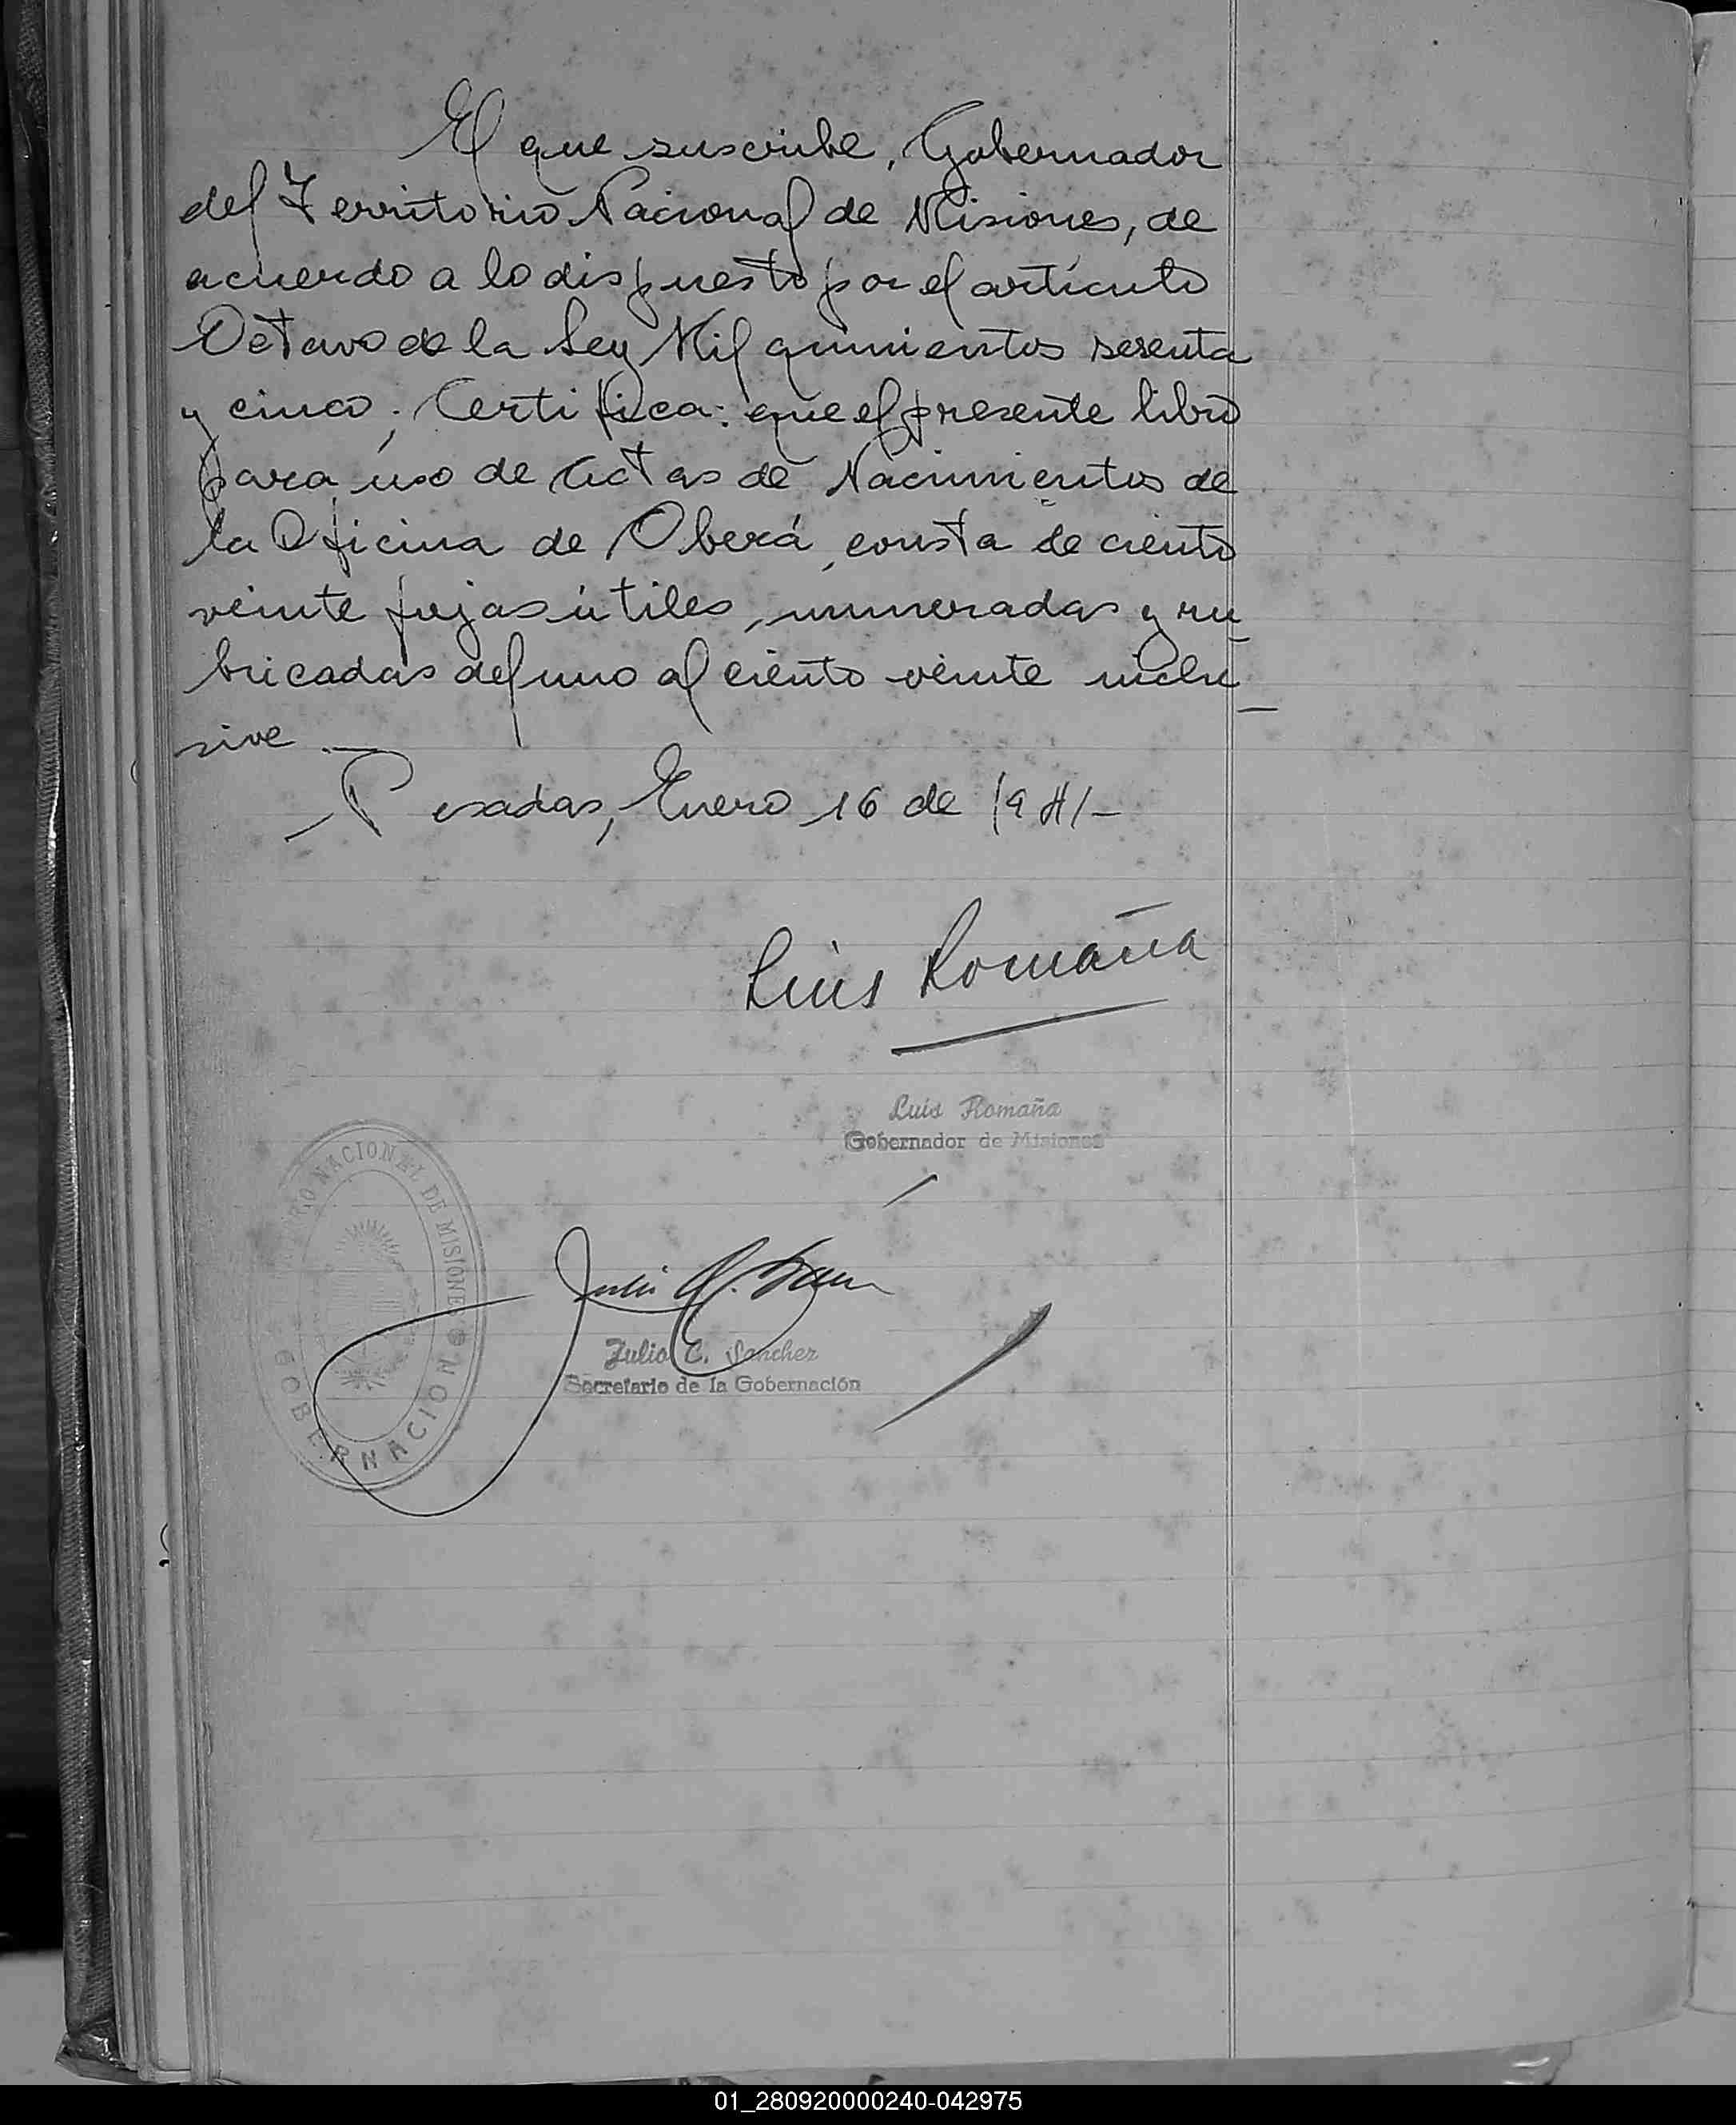 El que suscribe, Gobernador
del Territorio Nacional de Misiones, de
acuerdo a lo dispuesto por el artículo
Octavo de la Ley Mil quinientos sesenta
y cinco; Certifica: que el presente libro
para uso de Actas de Nacimientos de
la Oficina de Oberá, consta de ciento
veinte fojas útiles, numeradas y ru_
bricadas del uno al ciento veinte inclu_
sive.—
Posadas, Enero 16 de 1941—
Luis Romaña
Luis Romaña
Gobernador de Misiones
NACIONAL DE MISIONES
GOBERNACION
Julio C.
Julio C. Sanchez
Secretario de la Gobernación
01_280920000240-042975